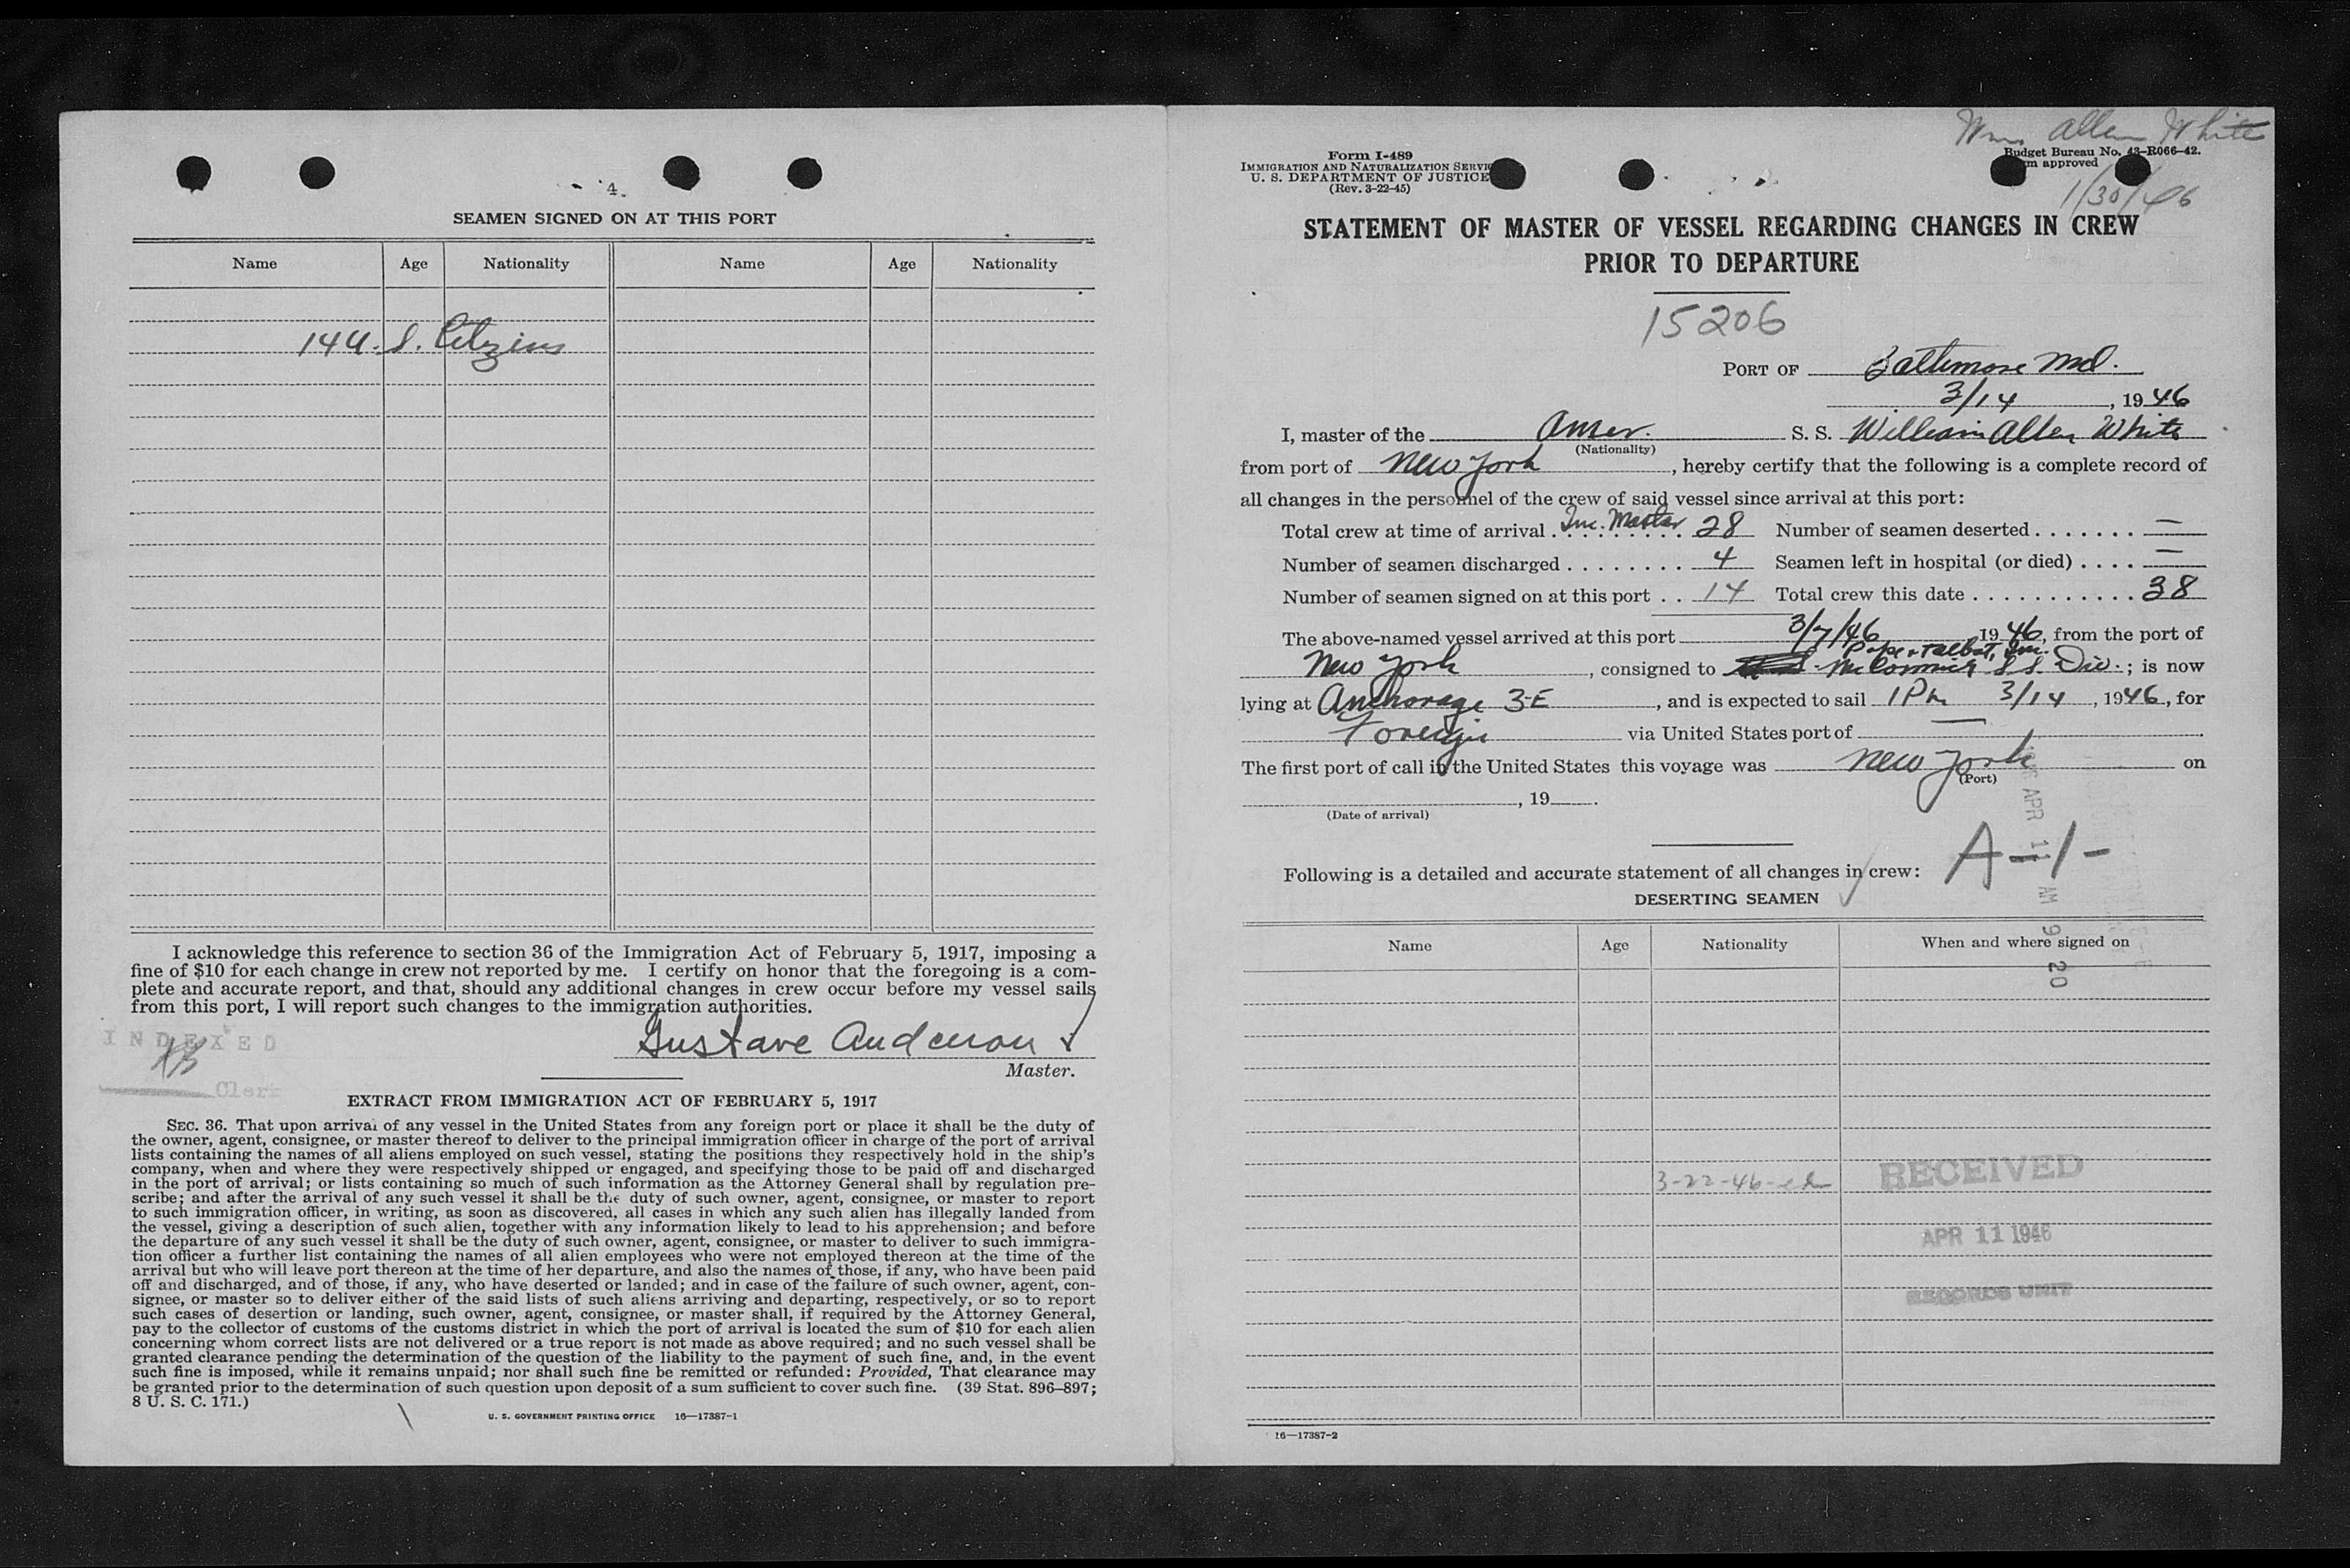 4.
SEAMEN SIGNED ON AT THIS PORT
Name Age Nationality Name Age Nationality
14 U. S. Citizens
I acknowledge this reference to section 36 of the Immigration Act of February 5, 1917, imposing a
fine of $10 for each change in crew not reported by me. I certify on honor that the foregoing is a com-
plete and accurate report, and that, should any additional changes in crew occur before my vessel sails
from this port, I will report such changes to the immigration authorities.
INDEXED
Gustave Anderson
Master.
Clerk
EXTRACT FROM IMMIGRATION ACT OF FEBRUARY 5, 1917
SEC. 36. That upon arrival of any vessel in the United States from any foreign port or place it shall be the duty of
the owner, agent, consignee, or master thereof to deliver to the principal immigration officer in charge of the port of arrival
lists containing the names of all aliens employed on such vessel, stating the positions they respectively hold in the ship's
company, when and where they were respectively shipped or engaged, and specifying those to be paid off and discharged
in the port of arrival; or lists containing so much of such information as the Attorney General shall by regulation pre-
scribe; and after the arrival of any such vessel it shall be the duty of such owner, agent, consignee, or master to report
to such immigration officer, in writing, as soon as discovered, all cases in which any such alien has illegally landed from
the vessel, giving a description of such alien, together with any information likely to lead to his apprehension; and before
the departure of any such vessel it shall be the duty of such owner, agent, consignee, or master to deliver to such immigra-
tion officer a further list containing the names of all alien employees who were not employed thereon at the time of the
arrival but who will leave port thereon at the time of her departure, and also the names of those, if any, who have been paid
off and discharged, and of those, if any, who have deserted or landed; and in case of the failure of such owner, agent, con-
signee, or master so to deliver either of the said lists of such aliens arriving and departing, respectively, or so to report
such cases of desertion or landing, such owner, agent, consignee, or master shall, if required by the Attorney General,
pay to the collector of customs of the customs district in which the port of arrival is located the sum of $10 for each alien
concerning whom correct lists are not delivered or a true report is not made as above required; and no such vessel shall be
granted clearance pending the determination of the question of the liability to the payment of such fine, and, in the event
such fine is imposed, while it remains unpaid; nor shall such fine be remitted or refunded: Provided, That clearance may
be granted prior to the determination of such question upon deposit of a sum sufficient to cover such fine. (39 Stat. 896–897;
8 U. S. C. 171.)
U. S. GOVERNMENT PRINTING OFFICE 16—17387-1
Wm Allen White
Form I-489
IMMIGRATION AND NATURALIZATION SERVIC
U. S. DEPARTMENT OF JUSTICE
(Rev. 3-22-45)
Budget Bureau No. 43–R066–42.
m approved
1/30/46
STATEMENT OF MASTER OF VESSEL REGARDING CHANGES IN CREW
PRIOR TO DEPARTURE
15206
PORT OF Baltimore Md.
3/14, 1946
I, master of the Amer. S. S. William Allen White
(Nationality)
from port of New York, hereby certify that the following is a complete record of
all changes in the personnel of the crew of said vessel since arrival at this port:
Total crew at time of arrival Inc. Master 28 Number of seamen deserted —
Number of seamen discharged 4 Seamen left in hospital (or died) —
Number of seamen signed on at this port 14 Total crew this date 38
The above-named vessel arrived at this port 3/7/46 1946, from the port of
Pope & Talbot, Inc.
New York, consigned to McCormick S.S. Div.; is now
lying at Anchorage 3-E, and is expected to sail 1 Pm 3/14, 1946, for
Foreign via United States port of —
The first port of call in the United States this voyage was New York on
(Port)
, 19 .
(Date of arrival)
APR 11 AM 9 20
A-1-
Following is a detailed and accurate statement of all changes in crew:
DESERTING SEAMEN
Name Age Nationality When and where signed on
3-22-46
RECEIVED
APR 11 1946
RECORDS UNIT
16—17387-2